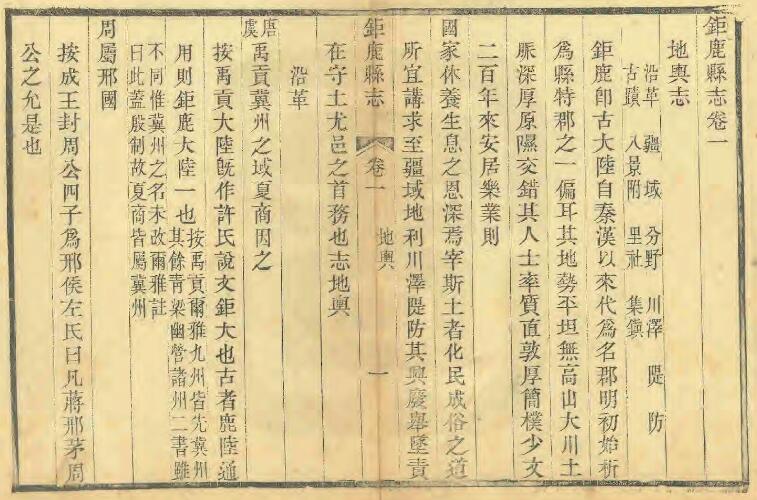 鉅鹿縣志卷一
地輿志
沿革 疆域 分野 川澤 隄防
古蹟 八景附 里社 集鎮
鉅鹿卽古大陸自秦漢以來代為名郡明初始析
為縣特郡之一偏耳其地勢平坦無高山大川土
脈深厚原隰交錯其人士率質直敦厚簡樸少文
二百年來安居樂業則
國家休養生息之恩深焉宰斯土者化民成俗之道
所宜講求至疆域地利川澤隄防其興廢舉墜責
鉅鹿縣志 卷一 地輿 一
在守土尤邑之首務也志地輿
沿革
唐虞 禹貢冀州之域夏商因之
按禹貢大陸旣作許氏說文鉅大也古者鹿陸通
用則鉅鹿大陸一也 按禹貢爾雅九州皆先冀州
其餘青梁幽營諸州二書雖
不同惟冀州之名未改爾雅註
曰此蓋殷制故夏商皆屬冀州
周屬邢國
按成王封周公四子為邢侯左氏曰凡蔣邢茅周
公之允是也